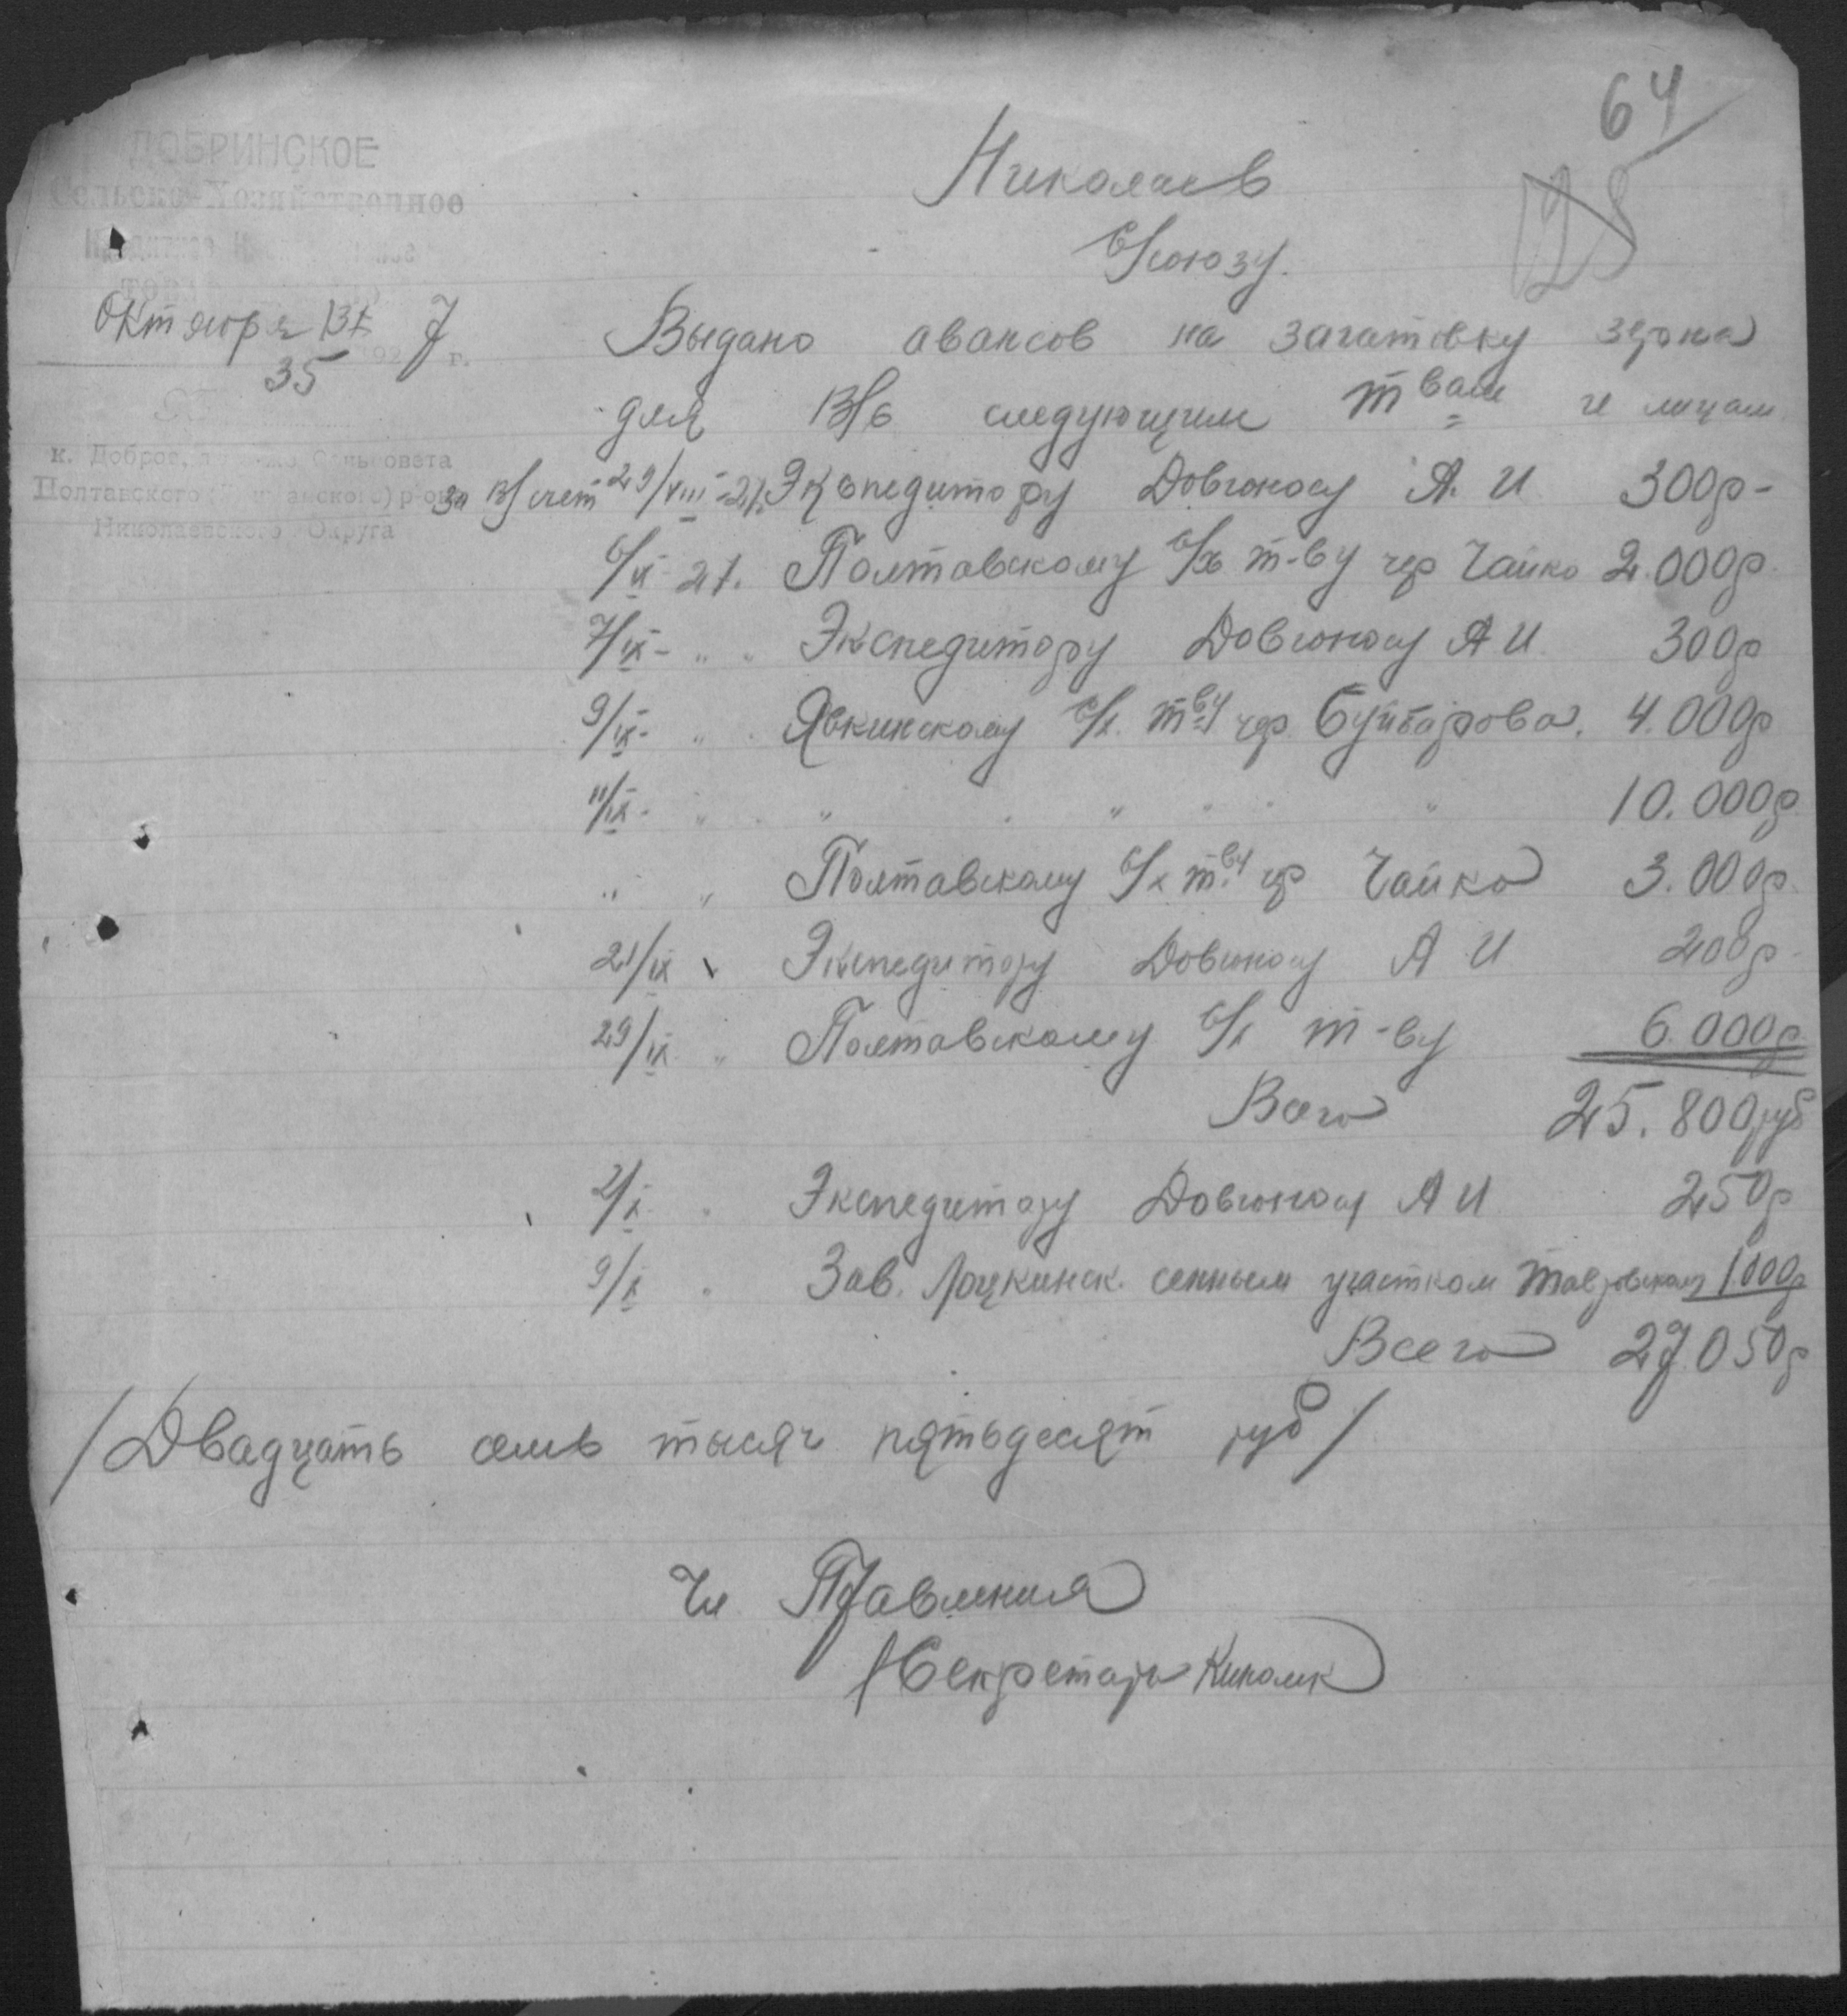 64
128
ДОБРИНСКОЕ
Сельско-Хозяйственное
Николаев
С/союзу.
Октября 13 7
192 г.
35
Выдано авансов на загатовку зерна
для В/с следующим т вам и лицам
к. Доброе, Сельсовета
Полтавского р-она
Николаевского Округа
За В/счет 29/VIII-27. Экспедитору Довгоносу А. И 300р-
6/IX 27. Полтавскому С/х т-ву чер Чайко 2.000р.
7/IX- " " Экспедитору Довгоносу А И. 300р
9/IX- " Явкинскому С/х. т-ву чер. Буйбарова. 4.000р
11/IX- " " " " " 10.000р.
" " Полтавскому С/х т-ву чр Чайко 3.000р.
21/IX " Экспедитору Довгоносу А И 200р-
29/IX " Полтавскому С/х т-ву 6.000р
Всего 25.800руб
2/X. " Экспедитору Довгоносу А И 250р
9/X " Зав. сенным участком 1000р
Всего 27.050р
/Двадцать семь тысяч пятьдесят руб/
Чл Правления
/Секретарь